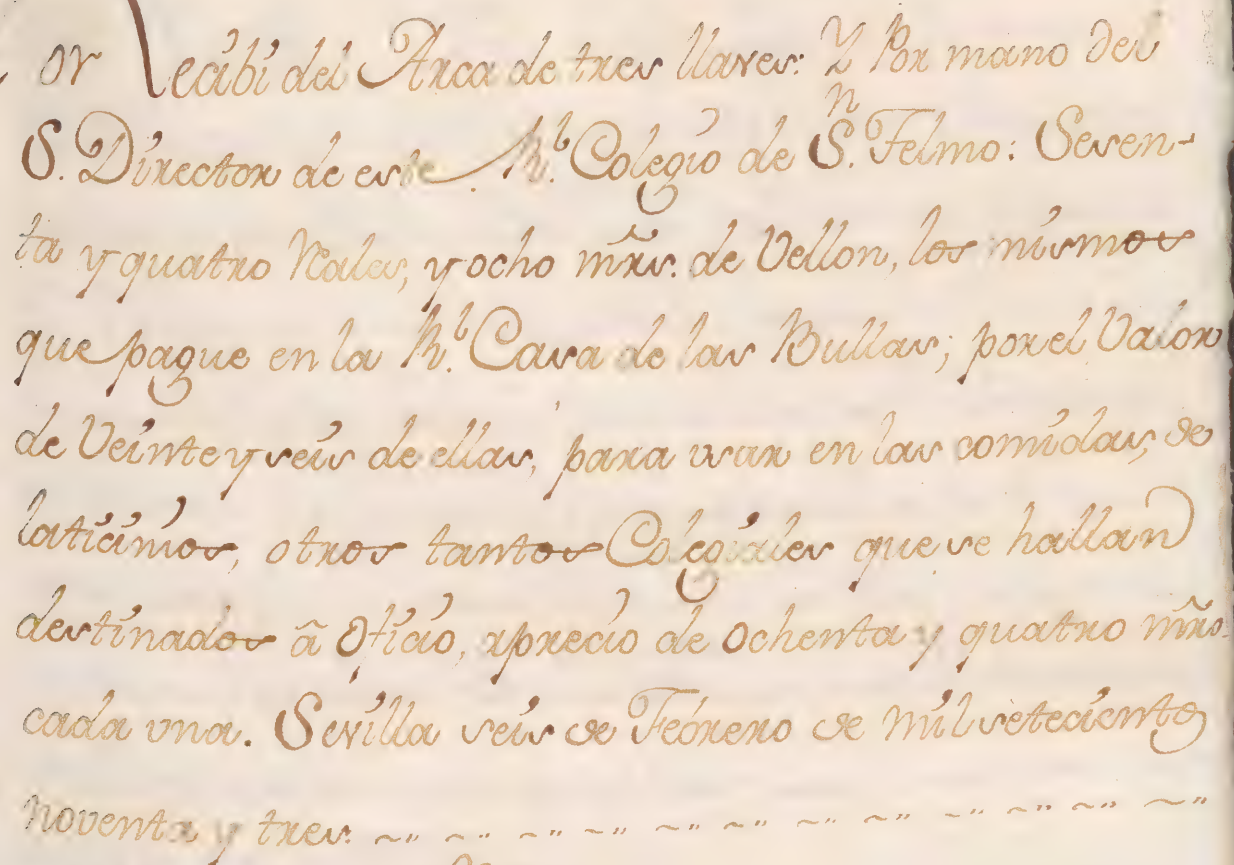 or Recibí del Arca de tres llaves: Y Por mano del
S. Director de este R.l Colegio de S.n Telmo: Seven-
ta y quatro Reales, y ocho mr̃s. de Vellon, los mismos
que pague en la R.l Casa de las Bullas; por el Valor
de Veinte y seis de ellas, para usar en las comidas, de
laticinios, otros tantos Colegiales que se hallan
destinados â Oficio, a precio de ochenta y quatro mr̃s.
cada vna. Sevilla seis de Febrero de mil setecientos
noventa y tres.